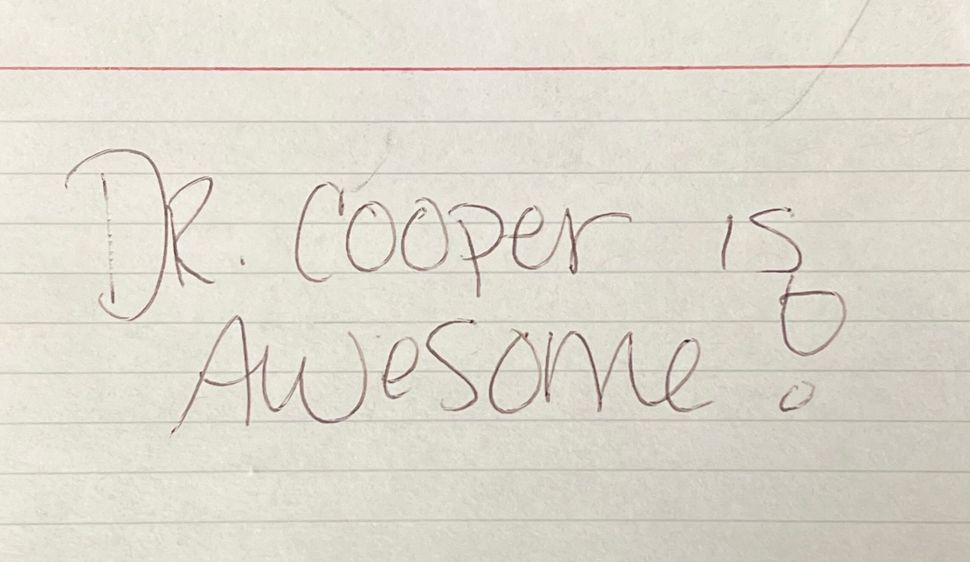 DR. Cooper is
Awesome!